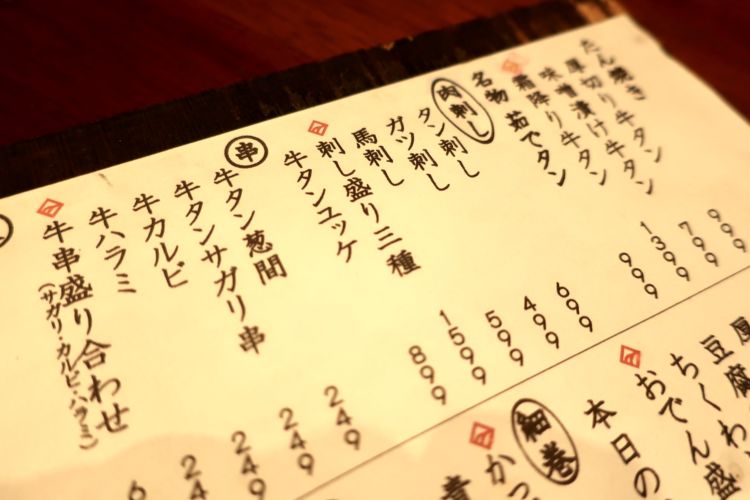 たん焼き
厚切り牛タン
999
味噌漬け牛タン
799
霜降り牛タン
1399
名物 茹でタン
999
肉刺し
タン刺し
699
ガツ刺し
499
馬刺し
599
刺し盛り三種
1599
牛タンユッケ
899
串
牛タン葱間
249
牛タンサガリ串
249
牛カルビ
249
牛ハラミ
249
牛串盛り合わせ
(サガリ・カルビ・ハラミ)
6
豆腐
ちくわ
おでん盛
本日の
細巻
かっ